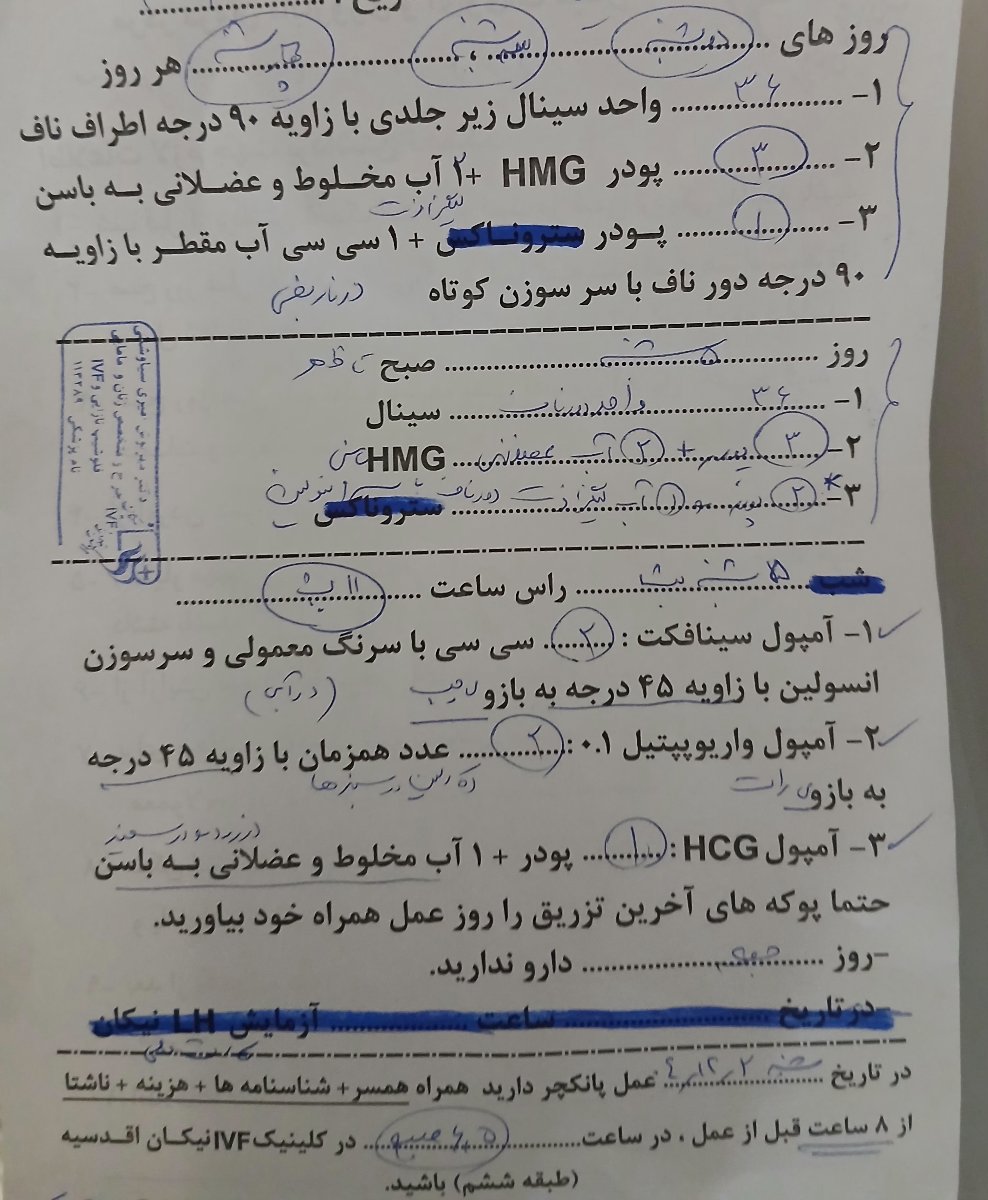 روز های دوشنبه ... سه شنبه ... چهارشنبه ... هر روز
۱- ... ۳۶ ... واحد سینال زیر جلدی با زاویه ۹۰ درجه اطراف ناف
۲- ... ۳ ... پودر HMG +۲ آب مخلوط و عضلانی به باسن
۳- ... ۱ ... پودر ستروتاکس + ۱ سی سی آب مقطر با زاویه
۹۰ درجه دور ناف با سر سوزن کوتاه
روز ... ۵ شنبه ... صبح تا ظهر
۱- ... ۳۶ واحد دور ناف ... سینال
۲- ... ۳ پودر + ۲ آب عضلانی ... HMG باسن
*۳- ... ۲ پودر ... ۱ آب ... دور ناف با سر انسولین ... ستروتاکس
شب ۵ شنبه شب ... راس ساعت ... ۱۱ شب ...
۱- آمپول سینافکت : ... ۲ ... سی سی با سرنگ معمولی و سرسوزن
انسولین با زاویه ۴۵ درجه به بازوی چپ (در آبی)
۲- آمپول واریوپپتیل ۰.۱ : ... ۲ ... عدد همزمان با زاویه ۴۵ درجه
به بازوی راست
۳- آمپول HCG : ... ۱ ... پودر + ۱ آب مخلوط و عضلانی به باسن
حتما پوکه های آخرین تزریق را روز عمل همراه خود بیاورید.
-روز ... جمعه ... دارو ندارید.
-در تاریخ ... ساعت ... آزمایش LH نیکان
در تاریخ شنبه ۴/۱۲/۲ عمل پانکچر دارید همراه همسر + شناسنامه ها + هزینه + ناشتا
از ۸ ساعت قبل از عمل ، در ساعت ... ۶٫۵ صبح ... در کلینیک IVF نیکان اقدسیه
(طبقه ششم) باشید.